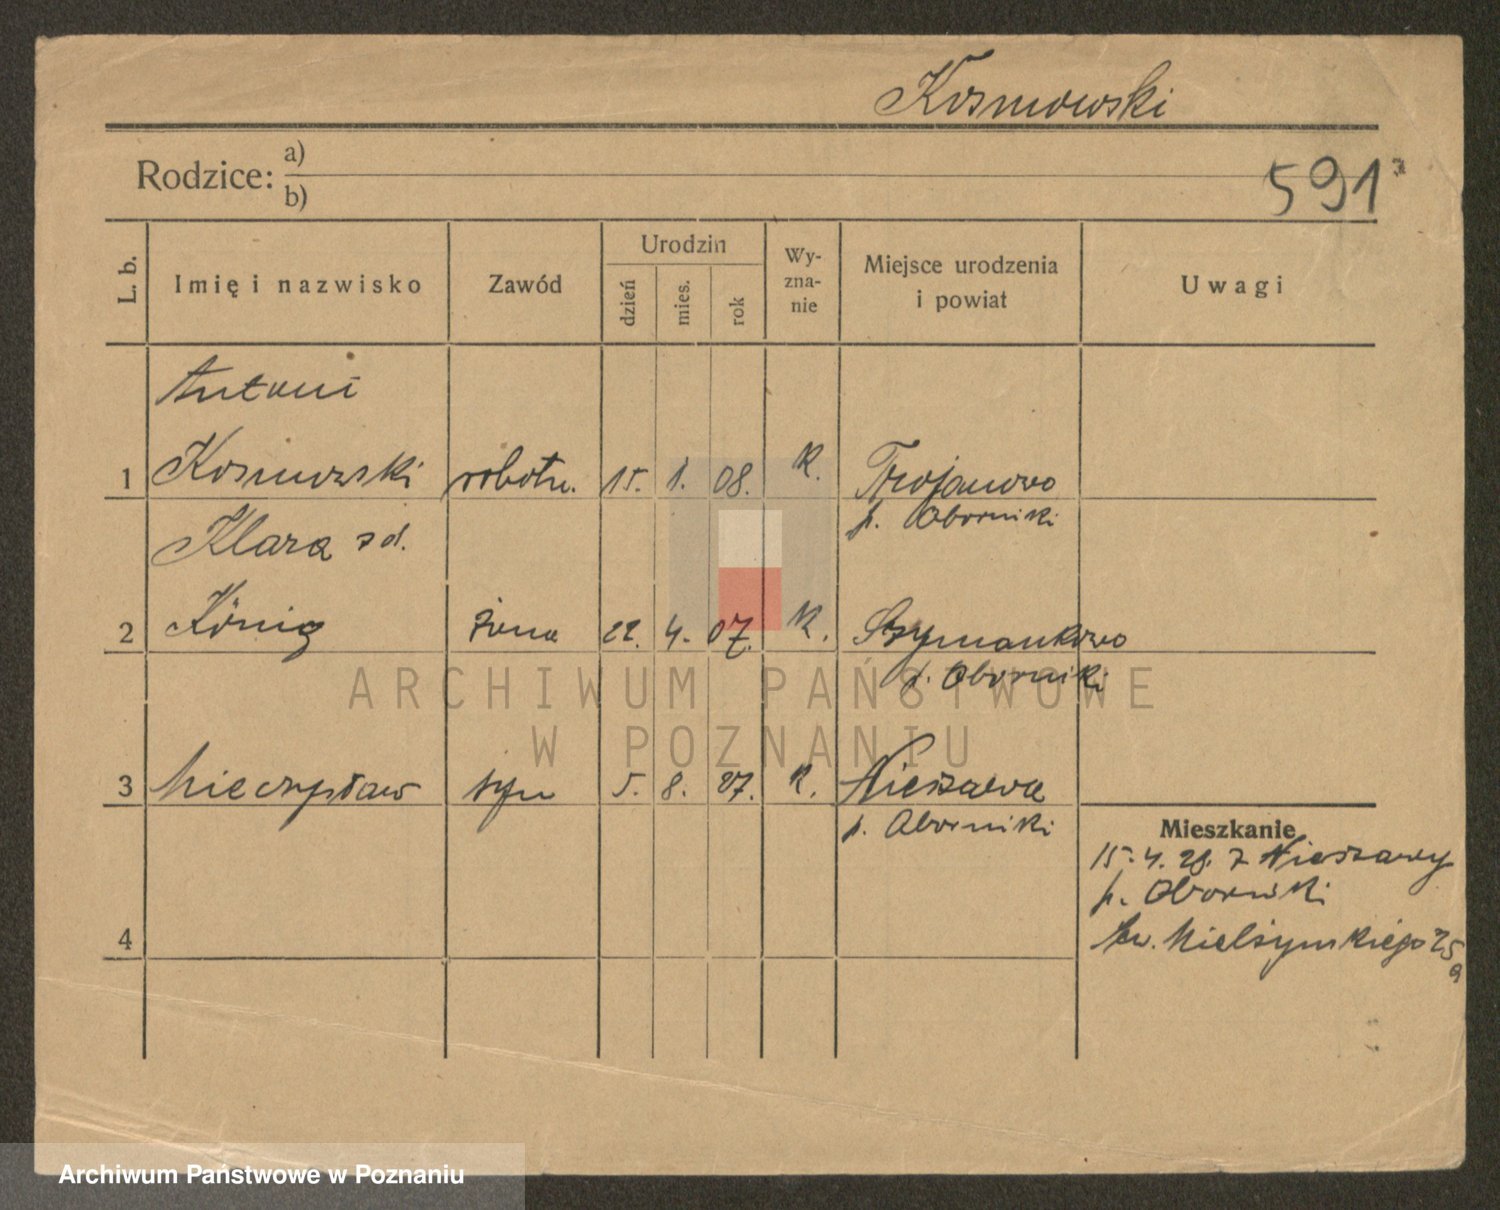 Kosmowski
Rodzice: a)
b)
591
L. b.
Imię i nazwisko
Zawód
Urodzin
dzień
mies.
rok
Wy-
zna-
nie
Miejsce urodzenia
i powiat
Uwagi
Antoni
1 Kosmowski robotn. 15. 1. 08. K. Trojanowo
p. Oborniki
Klara z d.
2 König żona 22. 4. 07. K. Szymankowo
p. Oborniki
3 Mieczysław syn 5. 8. 27. K. Nieszawa
p. Oborniki
Mieszkanie
15. 4. 28. z Nieszawy
p. Oborniki
4
Mielżyńskiego 25
ARCHIWUM PAŃSTWOWE
W POZNANIU
Archiwum Państwowe w Poznaniu